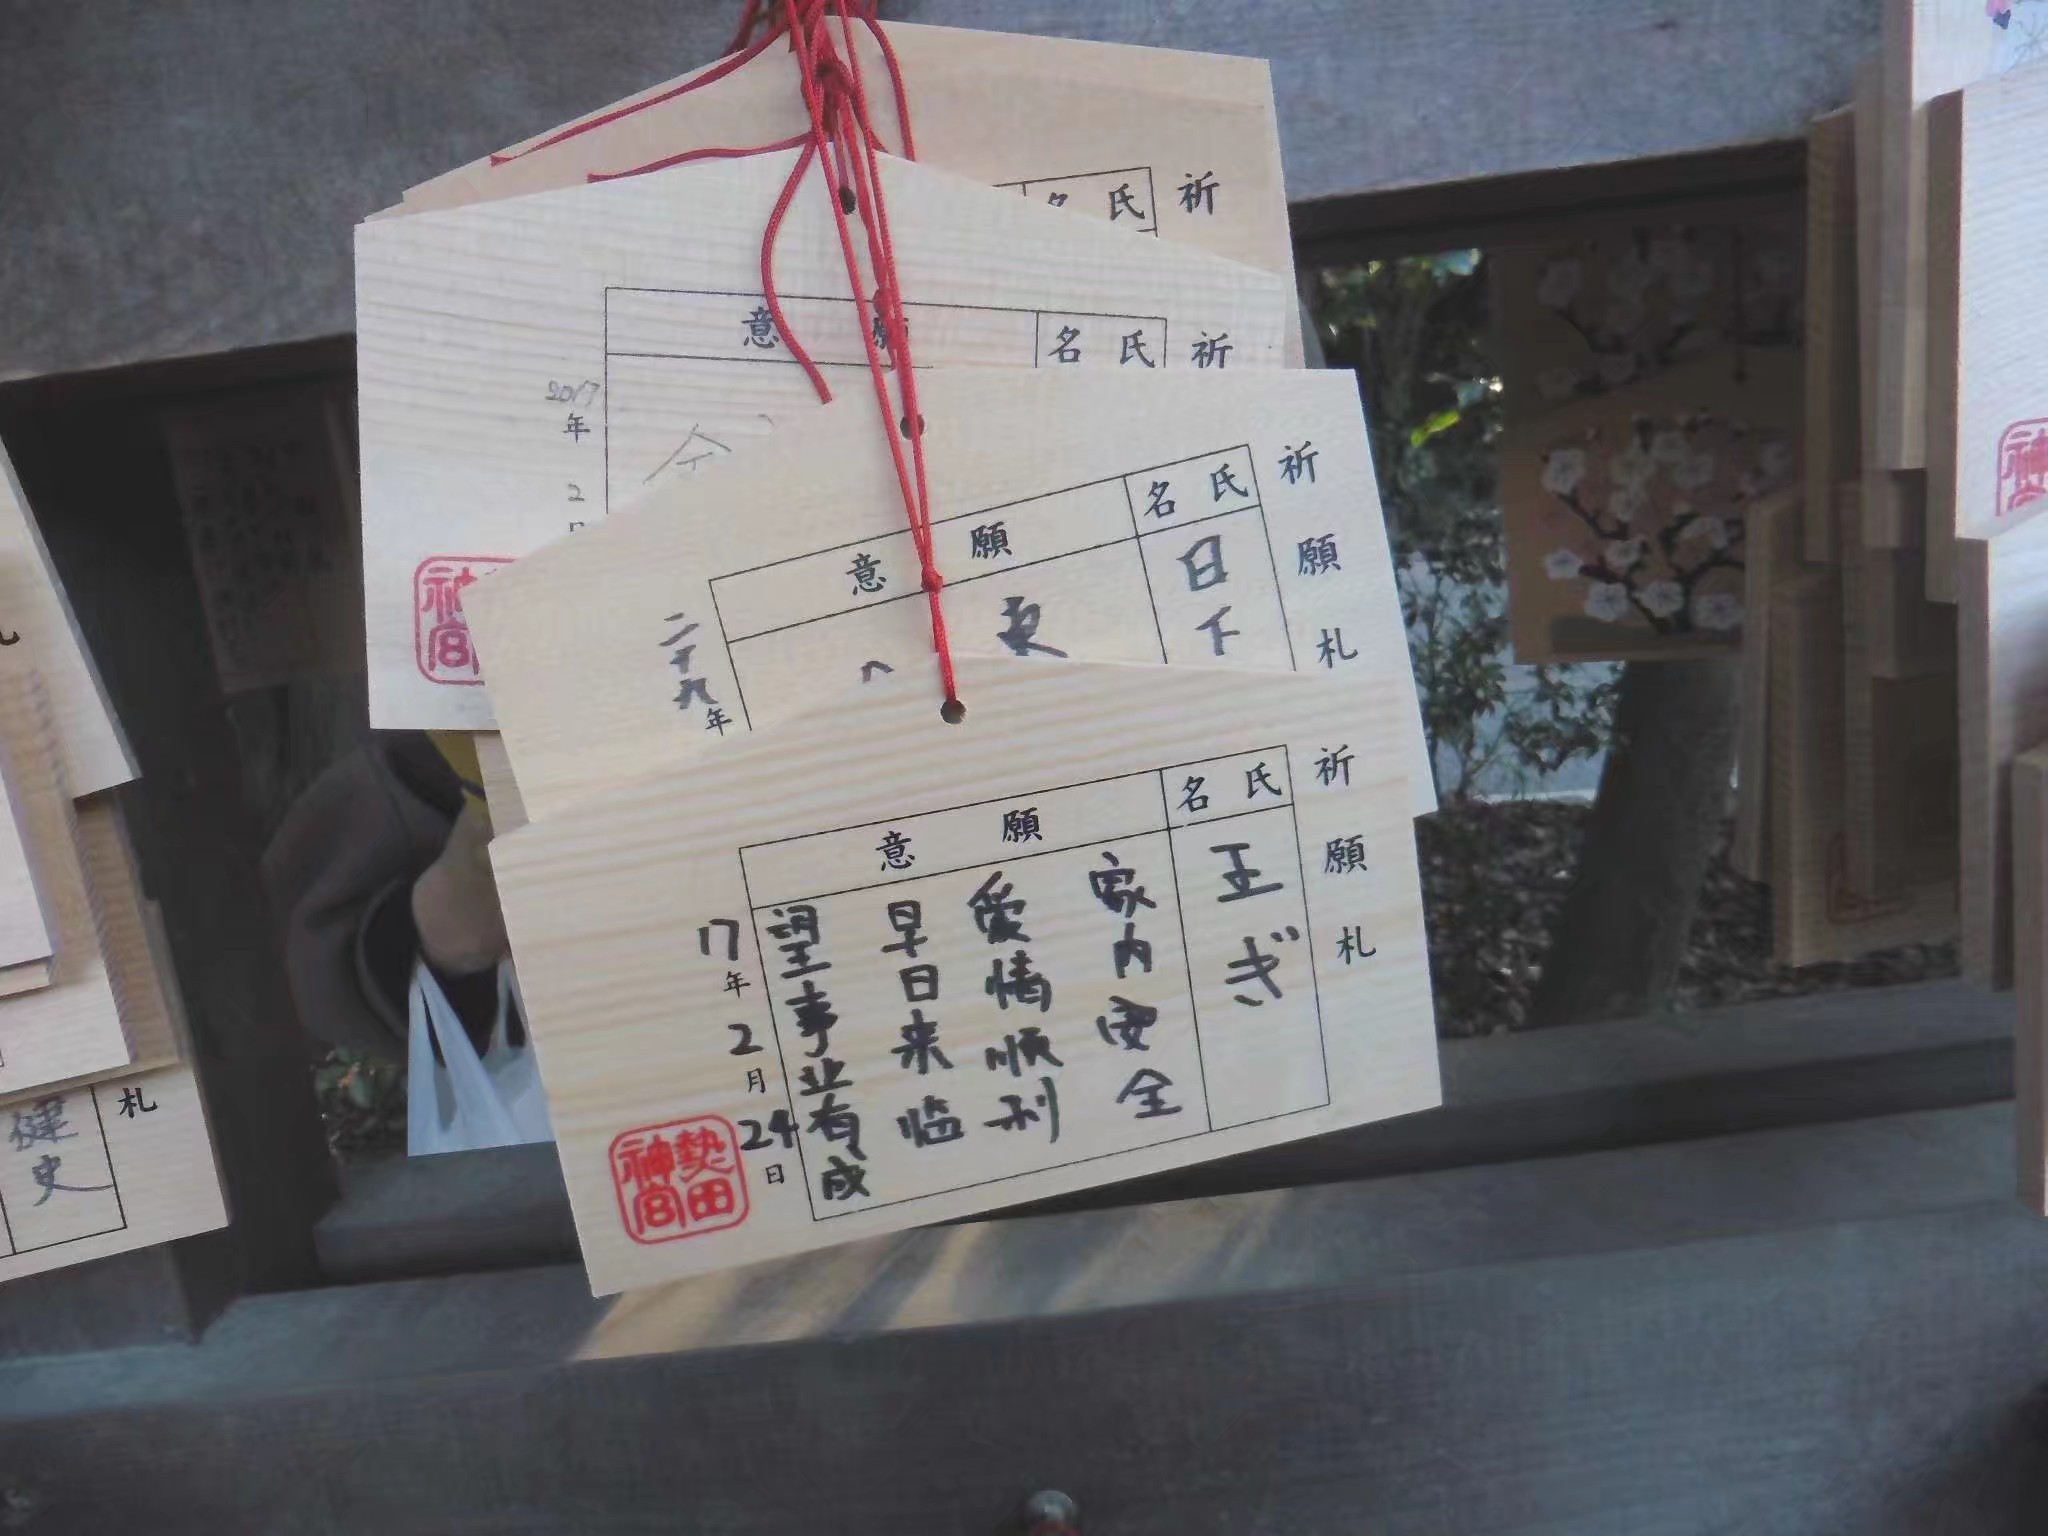 氏名
祈
意願
氏名
祈
2017
年
2
今
神宮
祈願札
氏名
日下
願意
東
二十九年
祈願札
氏名
王ぎ
願意
家内安全
愛情順利
早日来临
望事业有成
17年2月24日
熱田神宮
札
健史
神